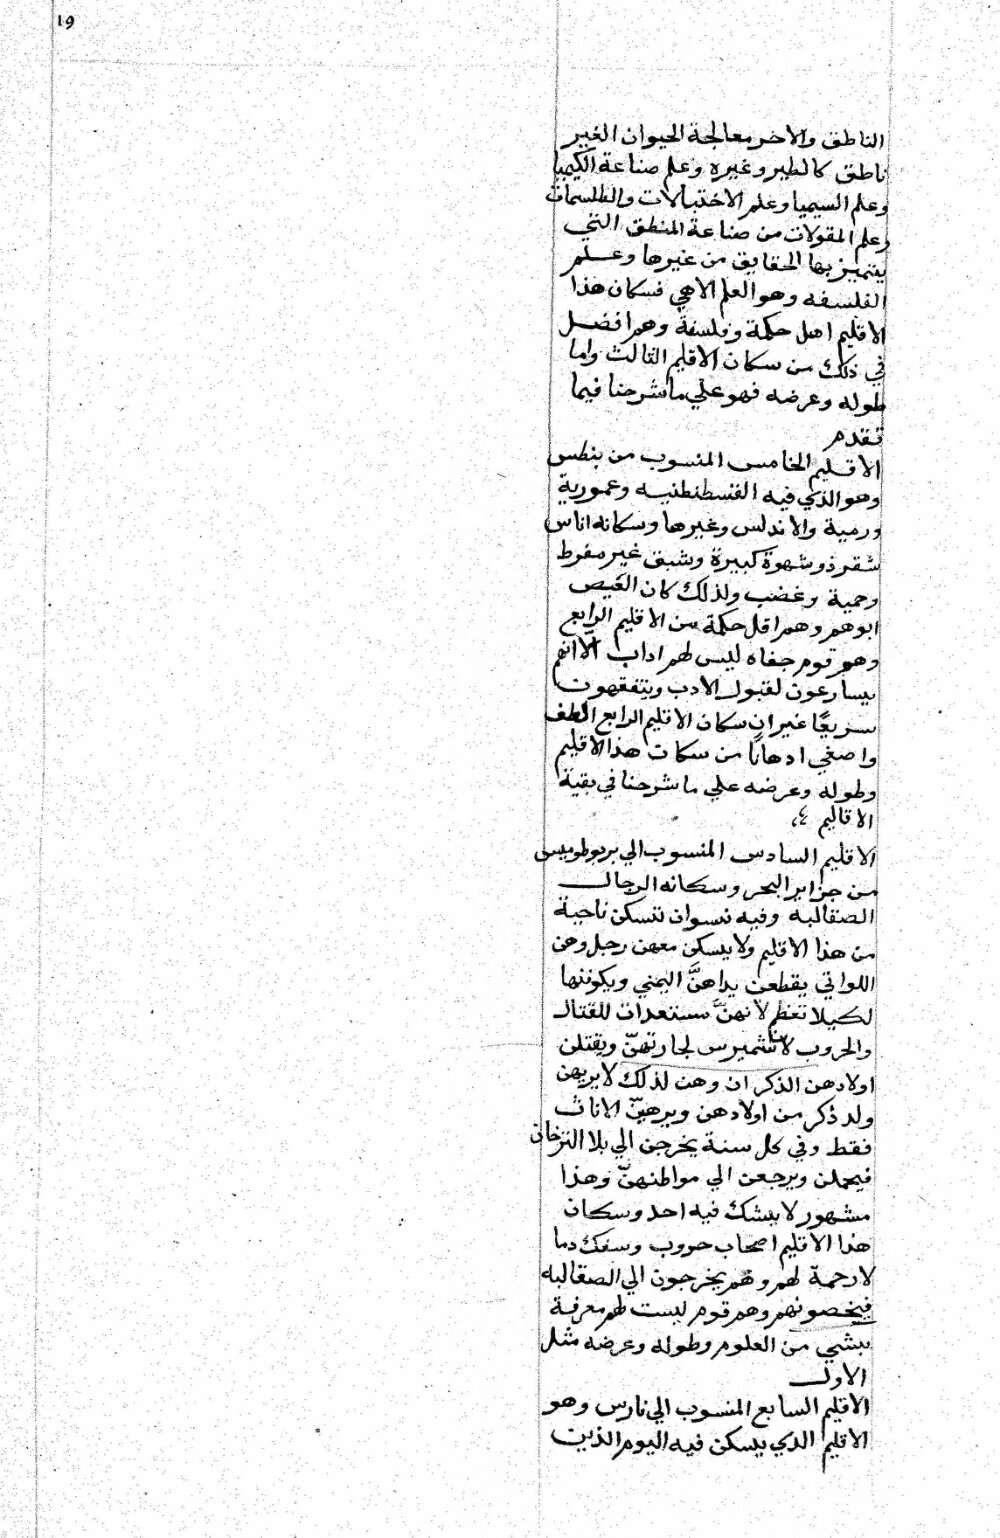 ١٩
الناطق والاخر معالجة الحيوان الغير
ناطق كالطير وغيره وعلم صناعة الكيميا
وعلم السيميا وعلم الاختبالات والطلسمات
وعلم المقولات من صناعة المنطق التي
يتميز بها الحقايق من غيرها وعلم
الفلسفه وهو العلم الاهي فسكان هذا
الاقليم اهل حكمة وفلسفة وهم افضل
في ذلك من سكان الاقليم الثالث واما
طوله وعرضه فهو علي ما شرحنا فيما
تقدم
الاقليم الخامس المنسوب من بنطس
وهو الذي فيه القسطنطنيه وعمورية
ورمية والاندلس وغيرها وسكانه اناس
شقر ذو شهوة كبيرة وشبق غير مفرط
وحمية وغضب ولذلك كان العيص
ابوهم وهم اقل حكمة من الاقليم الرابع
وهم قوم جفاه ليس لهم اداب الّا انهم
يسارعون لقبول الادب ويتفقهون
سريعًا غير ان سكان الاقليم الرابع الطف
واصفي ادهانًا من سكان هذا الاقليم
وطوله وعرضه علي ما شرحنا في بقية
الاقاليم
الاقليم السادس المنسوب الي
من جزاير البحر وسكانه الرجال
الصقالبه وفيه نسوان تسكن ناحية
من هذا الاقليم ولا يسكن معهن رجل وهن
اللواتي يقطعن يداهنَّ اليمني ويكونها
لكيلا تعظم لانهنّ مستعدات للقتال
والحروب لحارتهنّ ويقتلن
اولادهن الذكران وهن لذلك لا يربهن
ولد ذكر من اولادهن ويربهنّ الاناث
فقط وفي كل سنة يخرجن الي بلا الترخان
فيحملن ويرجعن الي مواطنهنّ وهذا
مشهور لا يشك فيه احد وسكان
هذا الاقليم اصحاب حروب وسفك دما
لا رحمة لهم وهم يخرجون الي الصقالبه
فيخصونهم وهم قوم ليست لهم معرفة
بشي من العلوم وطوله وعرضه مثل
الاول
الاقليم السابع المنسوب الي نارس وهو
الاقليم الذي يسكن فيه اليوم الذين